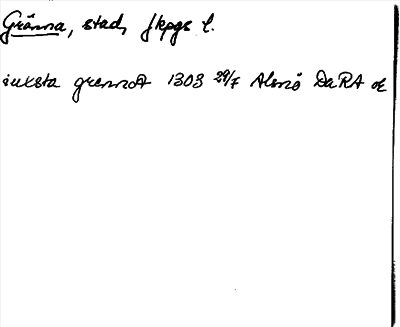 Gränna, stad, Jkpgs l.
iuxsta grennoa 1303 29/7 Alsnö DaRA or